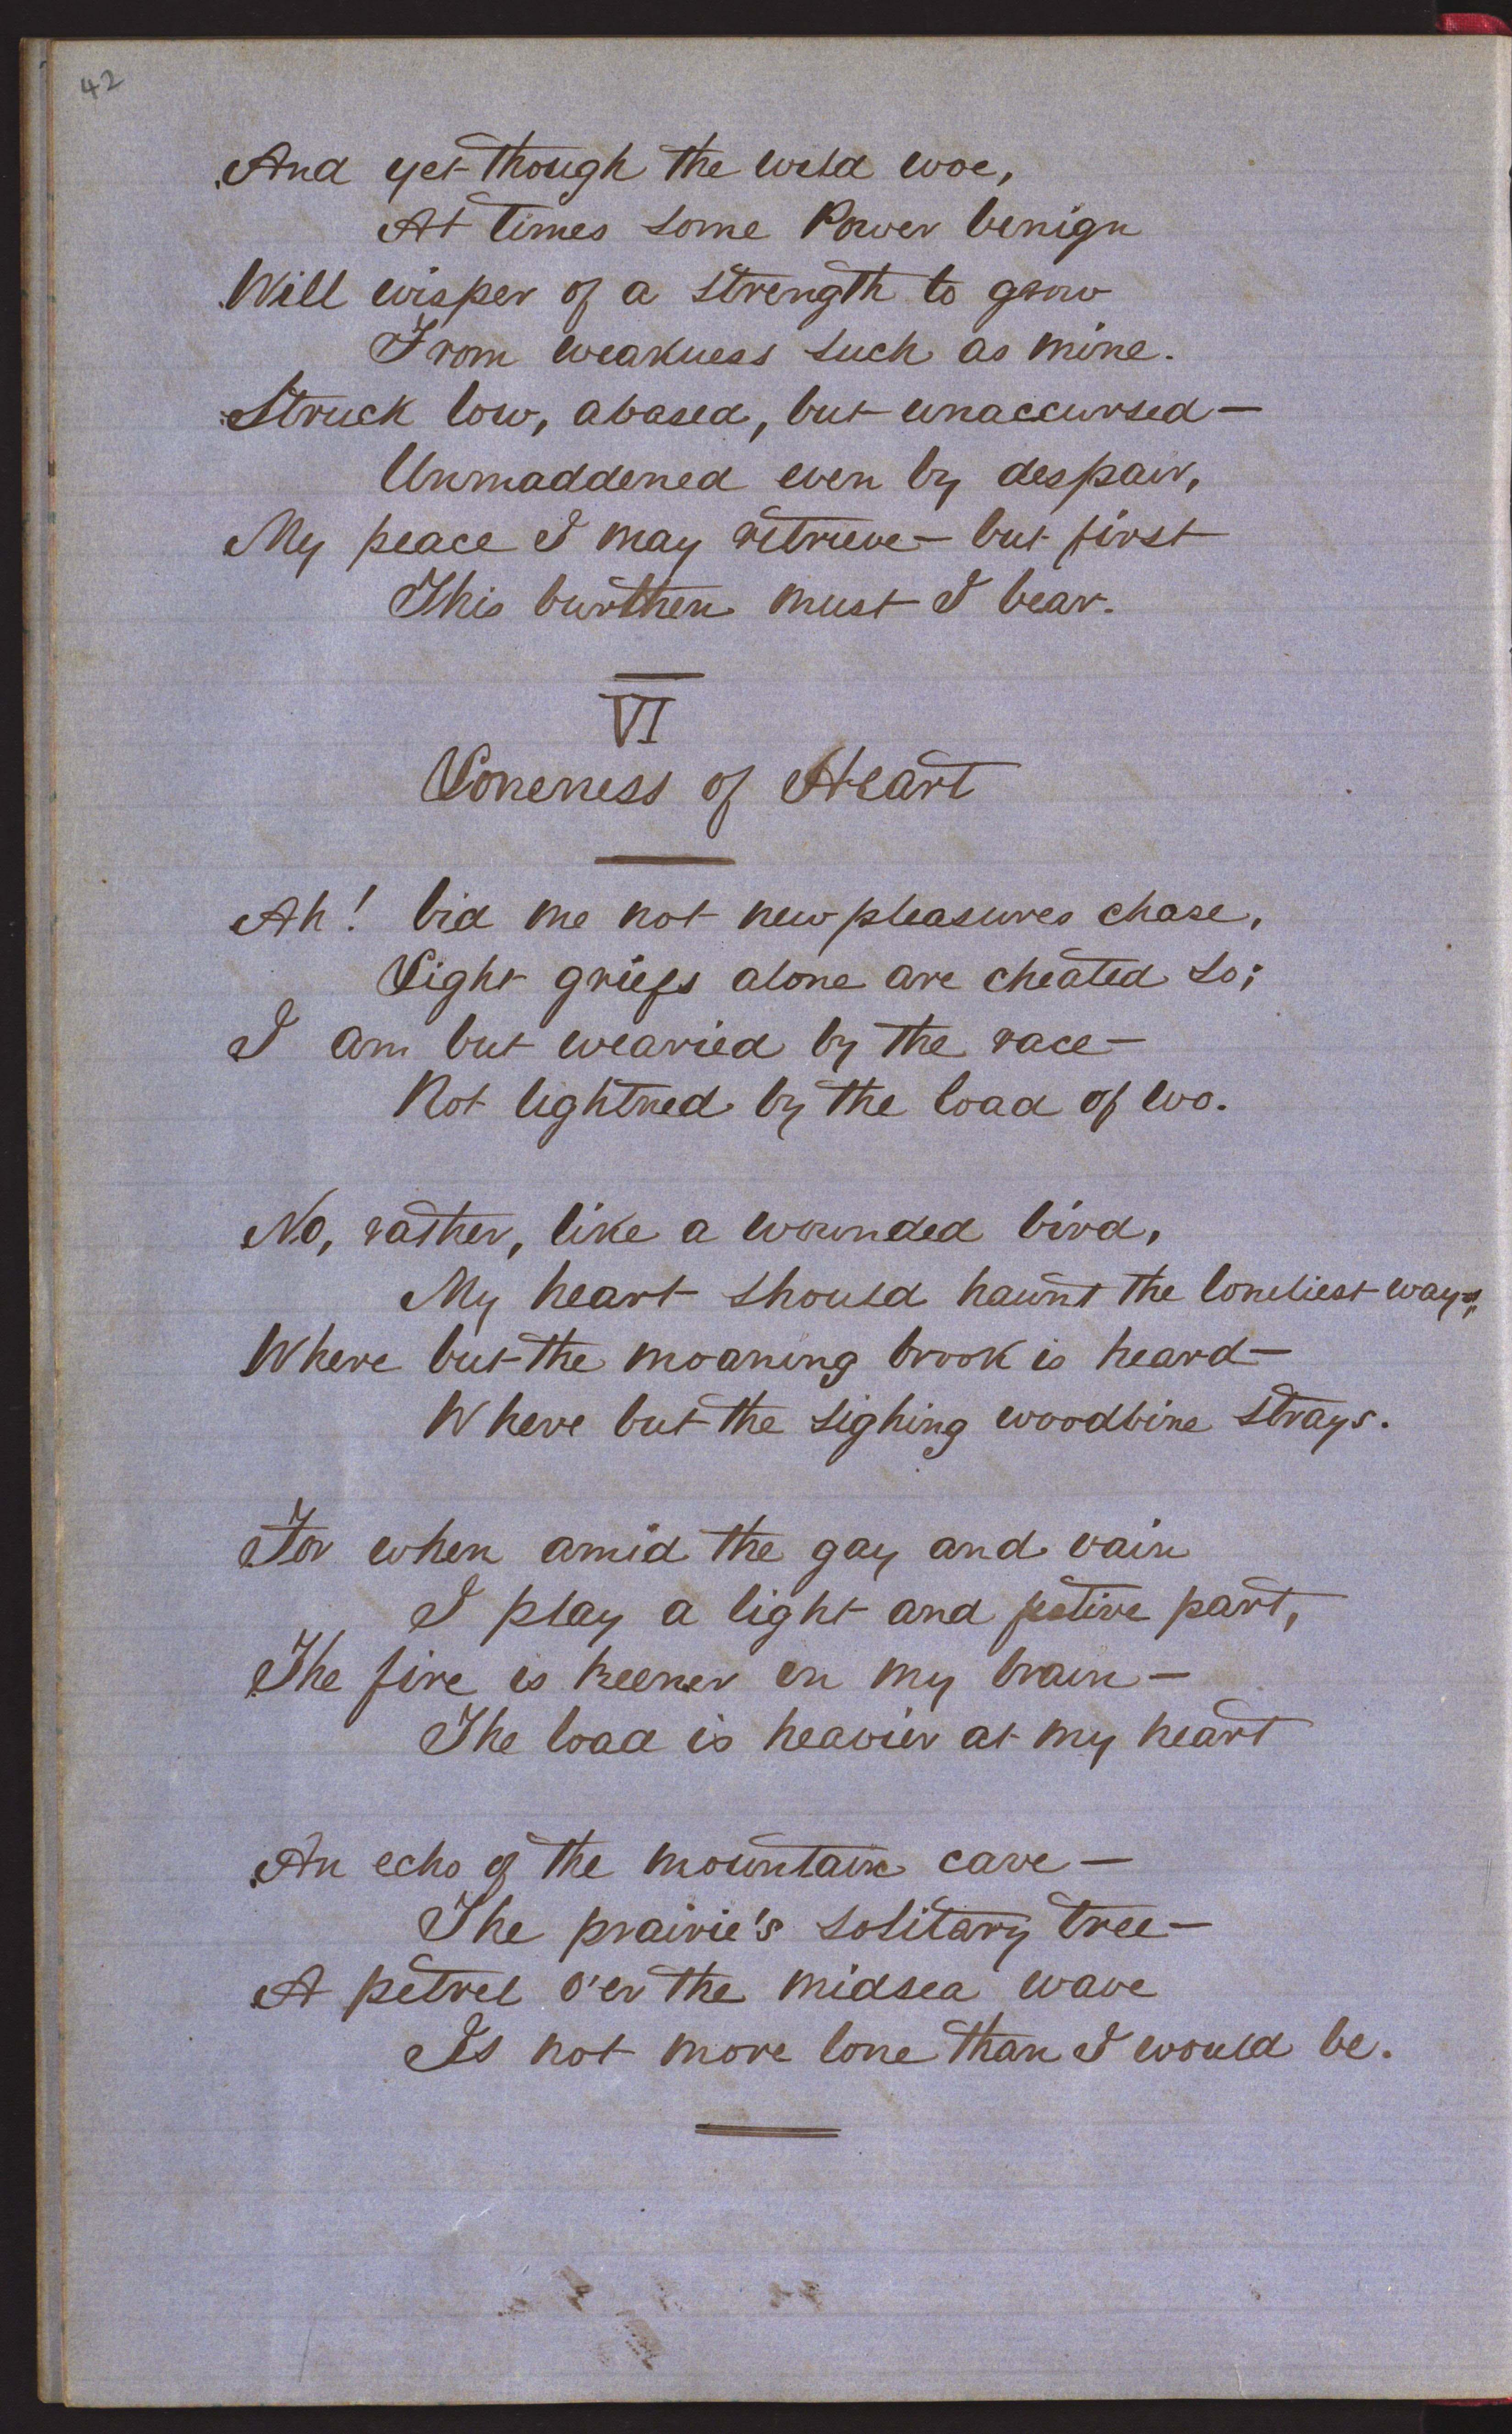 42
And yet though the wild woe,
At times some Power benign
Will wisper of a strength to grow
From weakness such as mine.
Struck low, abased, but unaccursed—
Unmaddened even by despair,
My peace I may retrieve— but first
This burthen must I bear.
VI
Loneness of Heart
Ah! bid me not new pleasures chase,
Light griefs alone are cheated so;
I am but wearied by the race—
Not lightned by the load of wo.
No, rather, like a wounded bird,
My heart should haunt the loneliest ways,
Where but the moaning brook is heard—
Where but the sighing woodbine strays.
For when amid the gay and vain
I play a light and part,
The fire is keener in my brain—
The load is heavier at my heart
An echo of the mountain cave—
The prairie's solitary tree—
A petrel o'er the midsea wave
Is not more lone than I would be.